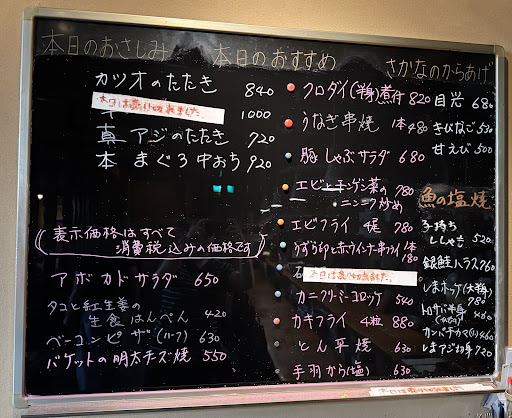 本日のおさしみ
カツオのたたき 840
本日は売り切れました。
1000
真アジのたたき 720
本まぐろ中おち 920
表示価格はすべて
消費税込みの価格です
アボカドサラダ 650
タコと紅生姜の
生食はんぺん 420
ベーコンピザ(ハーフ) 630
バケットの明太チーズ焼 550
本日のおすすめ
クロダイ(半身)煮付 820
うなぎ串焼 1本480
豚しゃぶサラダ 680
エビとチンゲン菜の 780
ニンニク炒め
エビフライ
うずら卵と赤ウインナー串フライ 1本
180
本日は売り切れました。
カニクリーミーコロッケ 540
カキフライ 4粒 880
とん平焼 630
手羽から(塩) 630
さかなのからあげ
目光 680
きびなご 530
甘えび 500
魚の塩焼
子持ち
ししゃも 520
銀鮭ハラス 760
しまホッケ(大半身)
780
トロサバ半身
カンパチカマ(小) 460
しまアジ切身 720
本日は売り切れました。